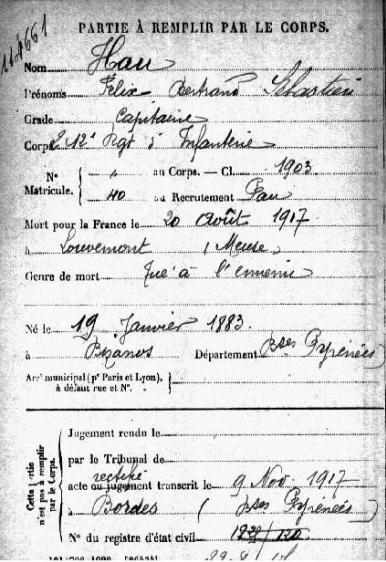 PARTIE À REMPLIR PAR LE CORPS.
Nom Hau
Prénoms Félix Bertrand Sébastien
Grade Capitaine
Corps 212e Rgt d'Infanterie
N° Matricule. { au Corps. — Cl. 1903
40 au Recrutement Pau
Mort pour la France le 20 Août 1917
à Louvemont (Meuse)
Genre de mort Tué à l'ennemi
Né le 19 Janvier 1883
à Bizanos Département Bses Pyrénées
Arrt municipal (pr Paris et Lyon), à défaut rue et N°.
Cette partie n'est pas à remplir par le Corps.
Jugement rendu le
par le Tribunal de
rectifié
acte ou jugement transcrit le 9 Nov. 1917
à Bordes (Bses Pyrénées)
N° du registre d'état civil